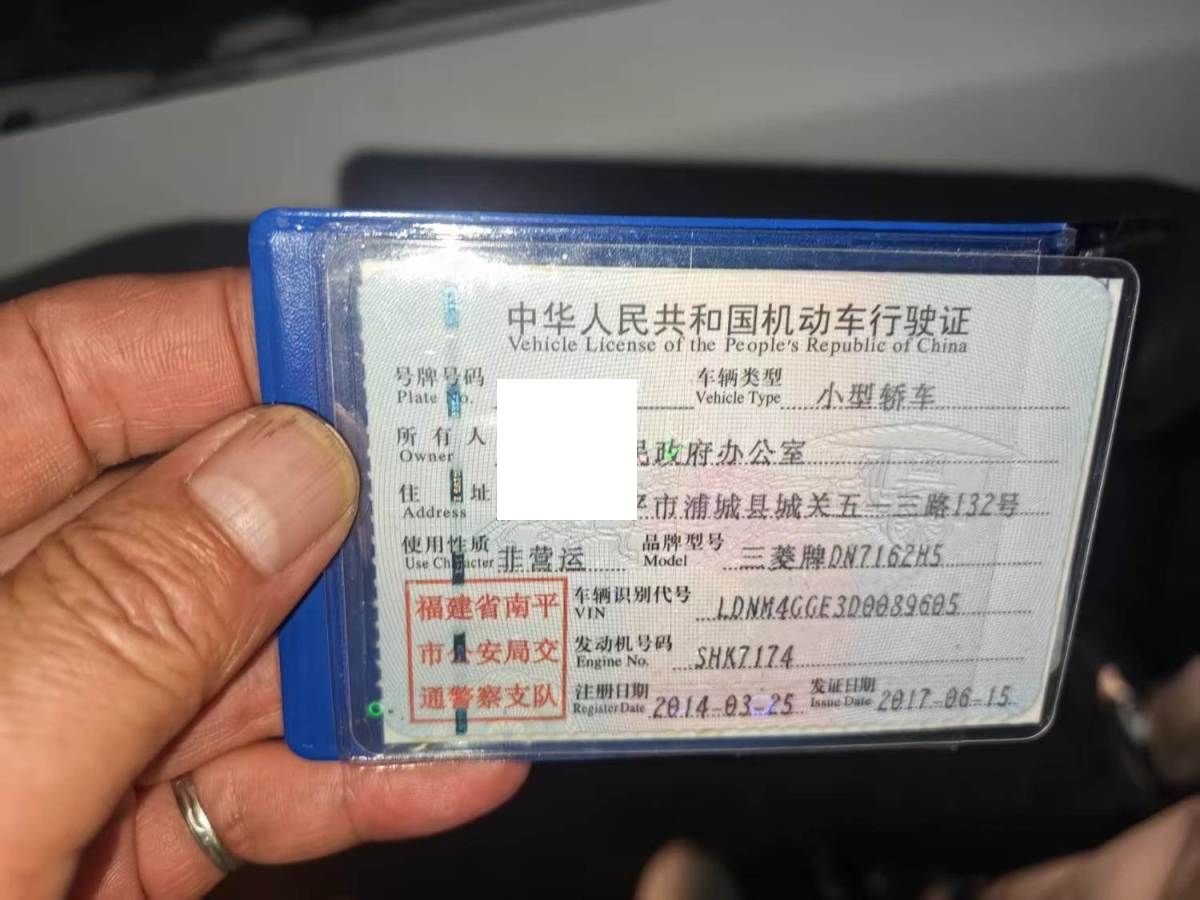 中华人民共和国机动车行驶证
Vehicle License of the People's Republic of China
号牌号码
Plate No.
车辆类型 小型轿车
Vehicle Type
所有人 民政府办公室
Owner
住址 平市浦城县城关五一三路132号
Address
使用性质 非营运
Use Character
品牌型号 三菱牌DN7162H5
Model
福建省南平
市公安局交
通警察支队
车辆识别代号 LDNM4GGE3D0089605
VIN
发动机号码 SHK7174
Engine No.
注册日期 2014-03-25
Register Date
发证日期 2017-06-15
Issue Date